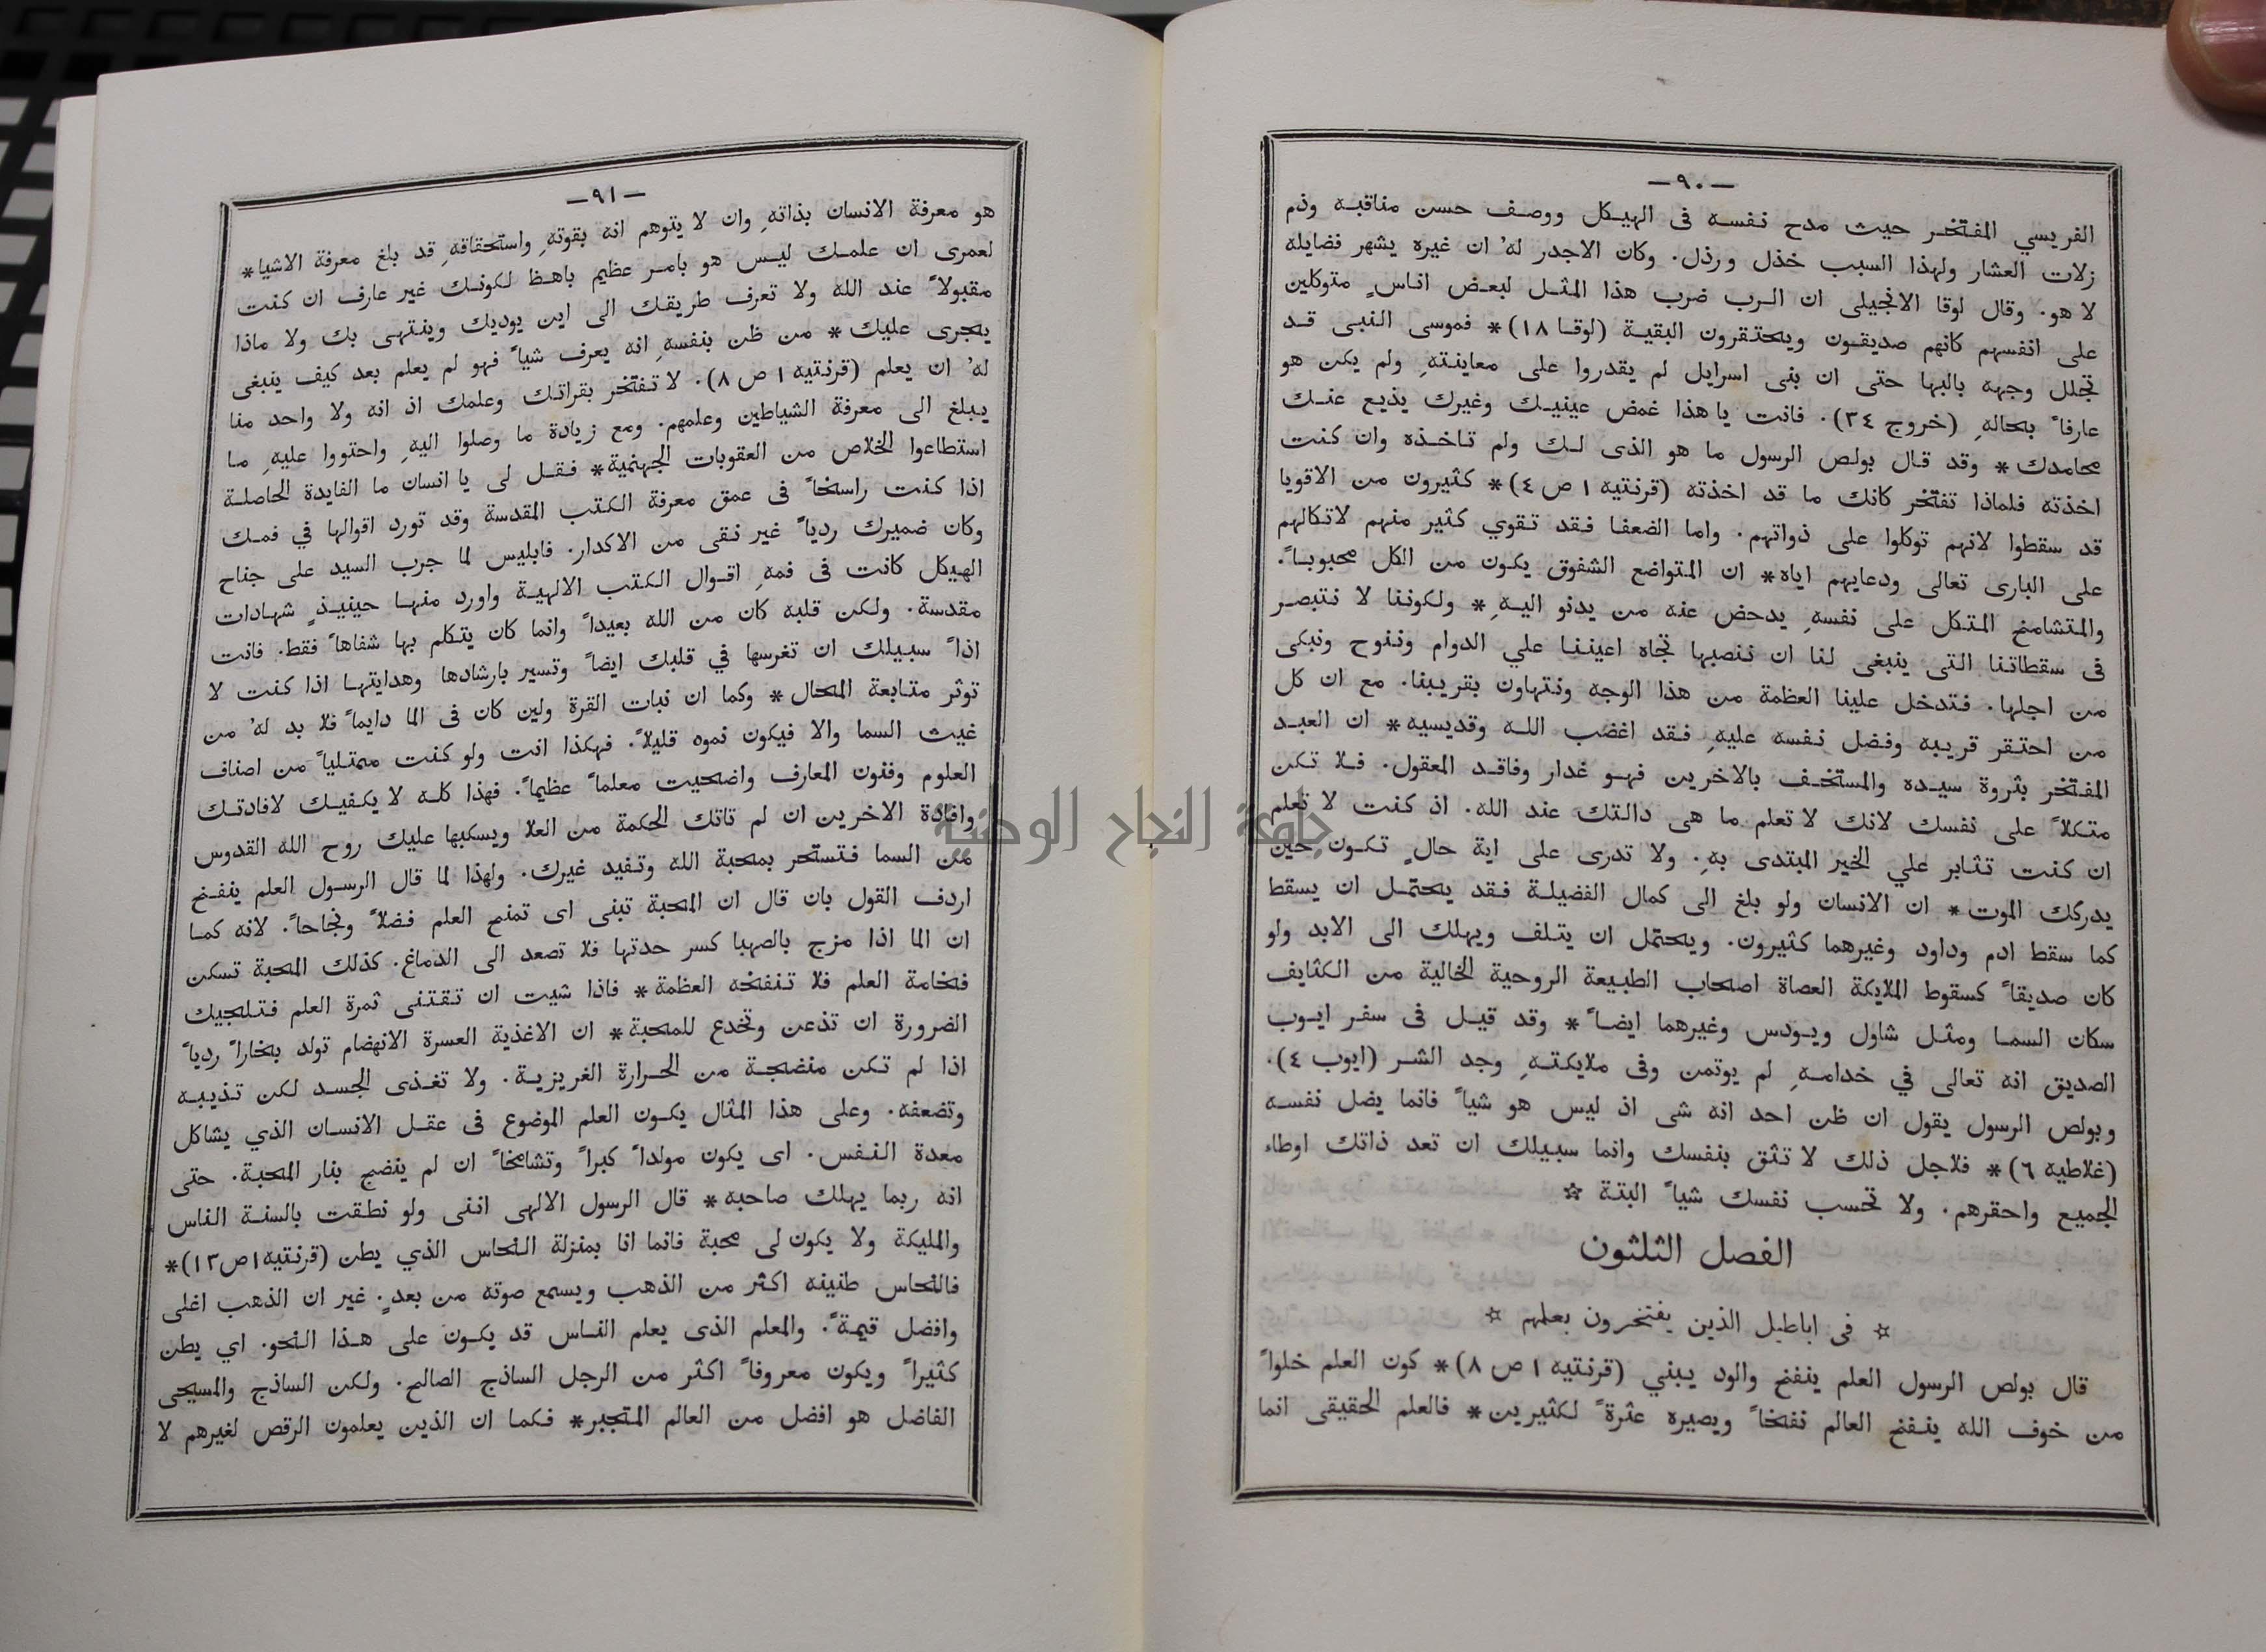 — ٩٠ —
الفريسي المفتخر حيث مدح نفسه فى الهيكل ووصف حسن مناقبه وذم
زلات العشار ولهذا السبب خذل ورذل. وكان الاجدر له ان غيره يشهر فضايله
لا هو. وقال لوقا الانجيلى ان الرب ضرب هذا المثل لبعض اناسٍ متوكلين
على انفسهم كانهم صديقون ويحتقرون البقية (لوقا ١٨)* فموسى النبى قد
تجلل وجهه بالبها حتى ان بنى اسرايل لم يقدروا على معاينتهِ ولم يكن هو
عارفاً بحالهِ (خروج ٣٤). فانت يا هذا غمض عينيك وغيرك يذيع عنك
محامدك* وقد قال بولص الرسول ما هو الذى لك ولم تاخذه وان كنت
اخذته فلماذا تفتخر كانك ما قد اخذته (قرنتيه ١ ص ٤)* كثيرون من الاقويا
قد سقطوا لانهم توكلوا على ذواتهم. واما الضعفا فقد تقوي كثير منهم لاتكالهم
على البارى تعالى ودعايهم اياه* ان المتواضع الشفوق يكون من الكل محبوباً.
والمتشامخ المتكل على نفسهِ يدحض عنه من يدنو اليهِ* ولكوننا لا نتبصر
فى سقطاتنا التى ينبغى لنا ان ننصبها تجاه اعيننا علي الدوام وننوح ونبكى
من اجلها. فتدخل علينا العظمة من هذا الوجه ونتهاون بقريبنا. مع ان كل
من احتقر قريبه وفضل نفسه عليهِ فقد اغضب الله وقديسيه* ان العبد
المفتخر بثروة سيده والمستخف بالاخرين فهو غدار وفاقد المعقول. فلا تكن
متكلاً على نفسك لانك لا تعلم ما هى دالتك عند الله. اذ كنت لا تعلم
ان كنت تثابر علي الخير المبتدى بهِ. ولا تدرى على اية حالٍ تكون حين
يدركك الموت* ان الانسان ولو بلغ الى كمال الفضيلة فقد يحتمل ان يسقط
كما سقط ادم وداود وغيرهما كثيرون. ويحتمل ان يتلف ويهلك الى الابد ولو
كان صديقاً كسقوط الملايكة العصاة اصحاب الطبيعة الروحية الخالية من الكثايف
سكان السما ومثل شاول ويودس وغيرهما ايضاً* وقد قيل فى سفر ايوب
الصديق انه تعالى في خدامهِ لم يوتمن وفى ملايكتهِ وجد الشر (ايوب ٤).
وبولص الرسول يقول ان ظن احد انه شى اذ ليس هو شياً فانما يضل نفسه
(غلاطيه ٦)* فلاجل ذلك لا تثق بنفسك وانما سبيلك ان تعد ذاتك اوطاء
الجميع واحقرهم. ولا تحسب نفسك شياً البتة ☆
الفصل الثلثون
☆ فى اباطيل الذين يفتخرون بعلمهم ☆
قال بولص الرسول العلم ينفخ والود يبني (قرنتيه ١ ص ٨)* كون العلم خلواً
من خوف الله ينفخ العالم نفخاً ويصيره عثرةً لكثيرين* فالعلم الحقيقى انما
— ٩١ —
هو معرفة الانسان بذاتهِ وان لا يتوهم انه بقوتهِ واستحقاقهِ قد بلغ معرفة الاشيا*
لعمرى ان علمك ليس هو بامر عظيم باهظ لكونك غير عارف ان كنت
مقبولاً عند الله ولا تعرف طريقك الى اين يوديك وينتهى بك ولا ماذا
يجرى عليك* من ظن بنفسهِ انه يعرف شياً فهو لم يعلم بعد كيف ينبغى
له ان يعلم (قرنتيه ١ ص ٨). لا تفتخر بقراتك وعلمك اذ انه ولا واحد منا
يبلغ الى معرفة الشياطين وعلمهم. ومع زيادة ما وصلوا اليهِ واحتووا عليهِ ما
استطاعوا الخلاص من العقوبات الجهنمية* فقل لى يا انسان ما الفايدة الحاصلة
اذا كنت راسخاً فى عمق معرفة الكتب المقدسة وقد تورد اقوالها في فمك
وكان ضميرك ردياً غير نقى من الاكدار. فابليس لما جرب السيد على جناح
الهيكل كانت فى فمهِ اقوال الكتب الالهية واورد منها حينيذٍ شهادات
مقدسة. ولكن قلبه كان من الله بعيداً وانما كان يتكلم بها شفاهاً فقط. فانت
اذاً سبيلك ان تغرسها في قلبك ايضاً وتسير بارشادها وهدايتها اذا كنت لا
توثر متابعة المحال* وكما ان نبات القرة ولين كان فى الما دايماً فلا بد له من
غيث السما والا فيكون نموه قليلاً. فهكذا انت ولو كنت ممتلياً من اصناف
العلوم وفنون المعارف واضحيت معلماً عظيماً. فهذا كله لا يكفيك لافادتك
وافادة الاخرين ان لم تاتك الحكمة من العلا ويسكبها عليك روح الله القدوس
من السما فتستحر بمحبة الله وتفيد غيرك. ولهذا لما قال الرسول العلم ينفخ
اردف القول بان قال ان المحبة تبنى اى تمنح العلم فضلاً ونجاحاً. لانه كما
ان الما اذا مزج بالصهبا كسر حدتها فلا تصعد الى الدماغ. كذلك المحبة تسكن
فخامة العلم فلا تنفخه العظمة* فاذا شيت ان تقتنى ثمرة العلم فتلجيك
الضرورة ان تذعن وتخدع للمحبة* ان الاغذية العسرة الانهضام تولد بخاراً ردياً
اذا لم تكن منضجة من الحرارة الغريزية. ولا تغذى الجسد لكن تذيبه
وتضعفه. وعلى هذا المثال يكون العلم الموضوع فى عقل الانسان الذي يشاكل
معدة النفس. اى يكون مولداً كبراً وتشامخاً ان لم ينضج بنار المحبة. حتى
انه ربما يهلك صاحبه* قال الرسول الالهى اننى ولو نطقت بالسنة الناس
والمليكة ولا يكون لى محبة فانما انا بمنزلة النحاس الذي يطن (قرنتيه ١ ص ١٣)*
فالنحاس طنينه اكثر من الذهب ويسمع صوته من بعدٍ. غير ان الذهب اغلى
وافضل قيمةً. والمعلم الذى يعلم الناس قد يكون على هذا النحو. اي يطن
كثيراً ويكون معروفاً اكثر من الرجل الساذج الصالح. ولكن الساذج والمسيحى
الفاضل هو افضل من العالم المتجبر* فكما ان الذين يعلمون الرقص لغيرهم لا
جامعة النجاح الوطنية